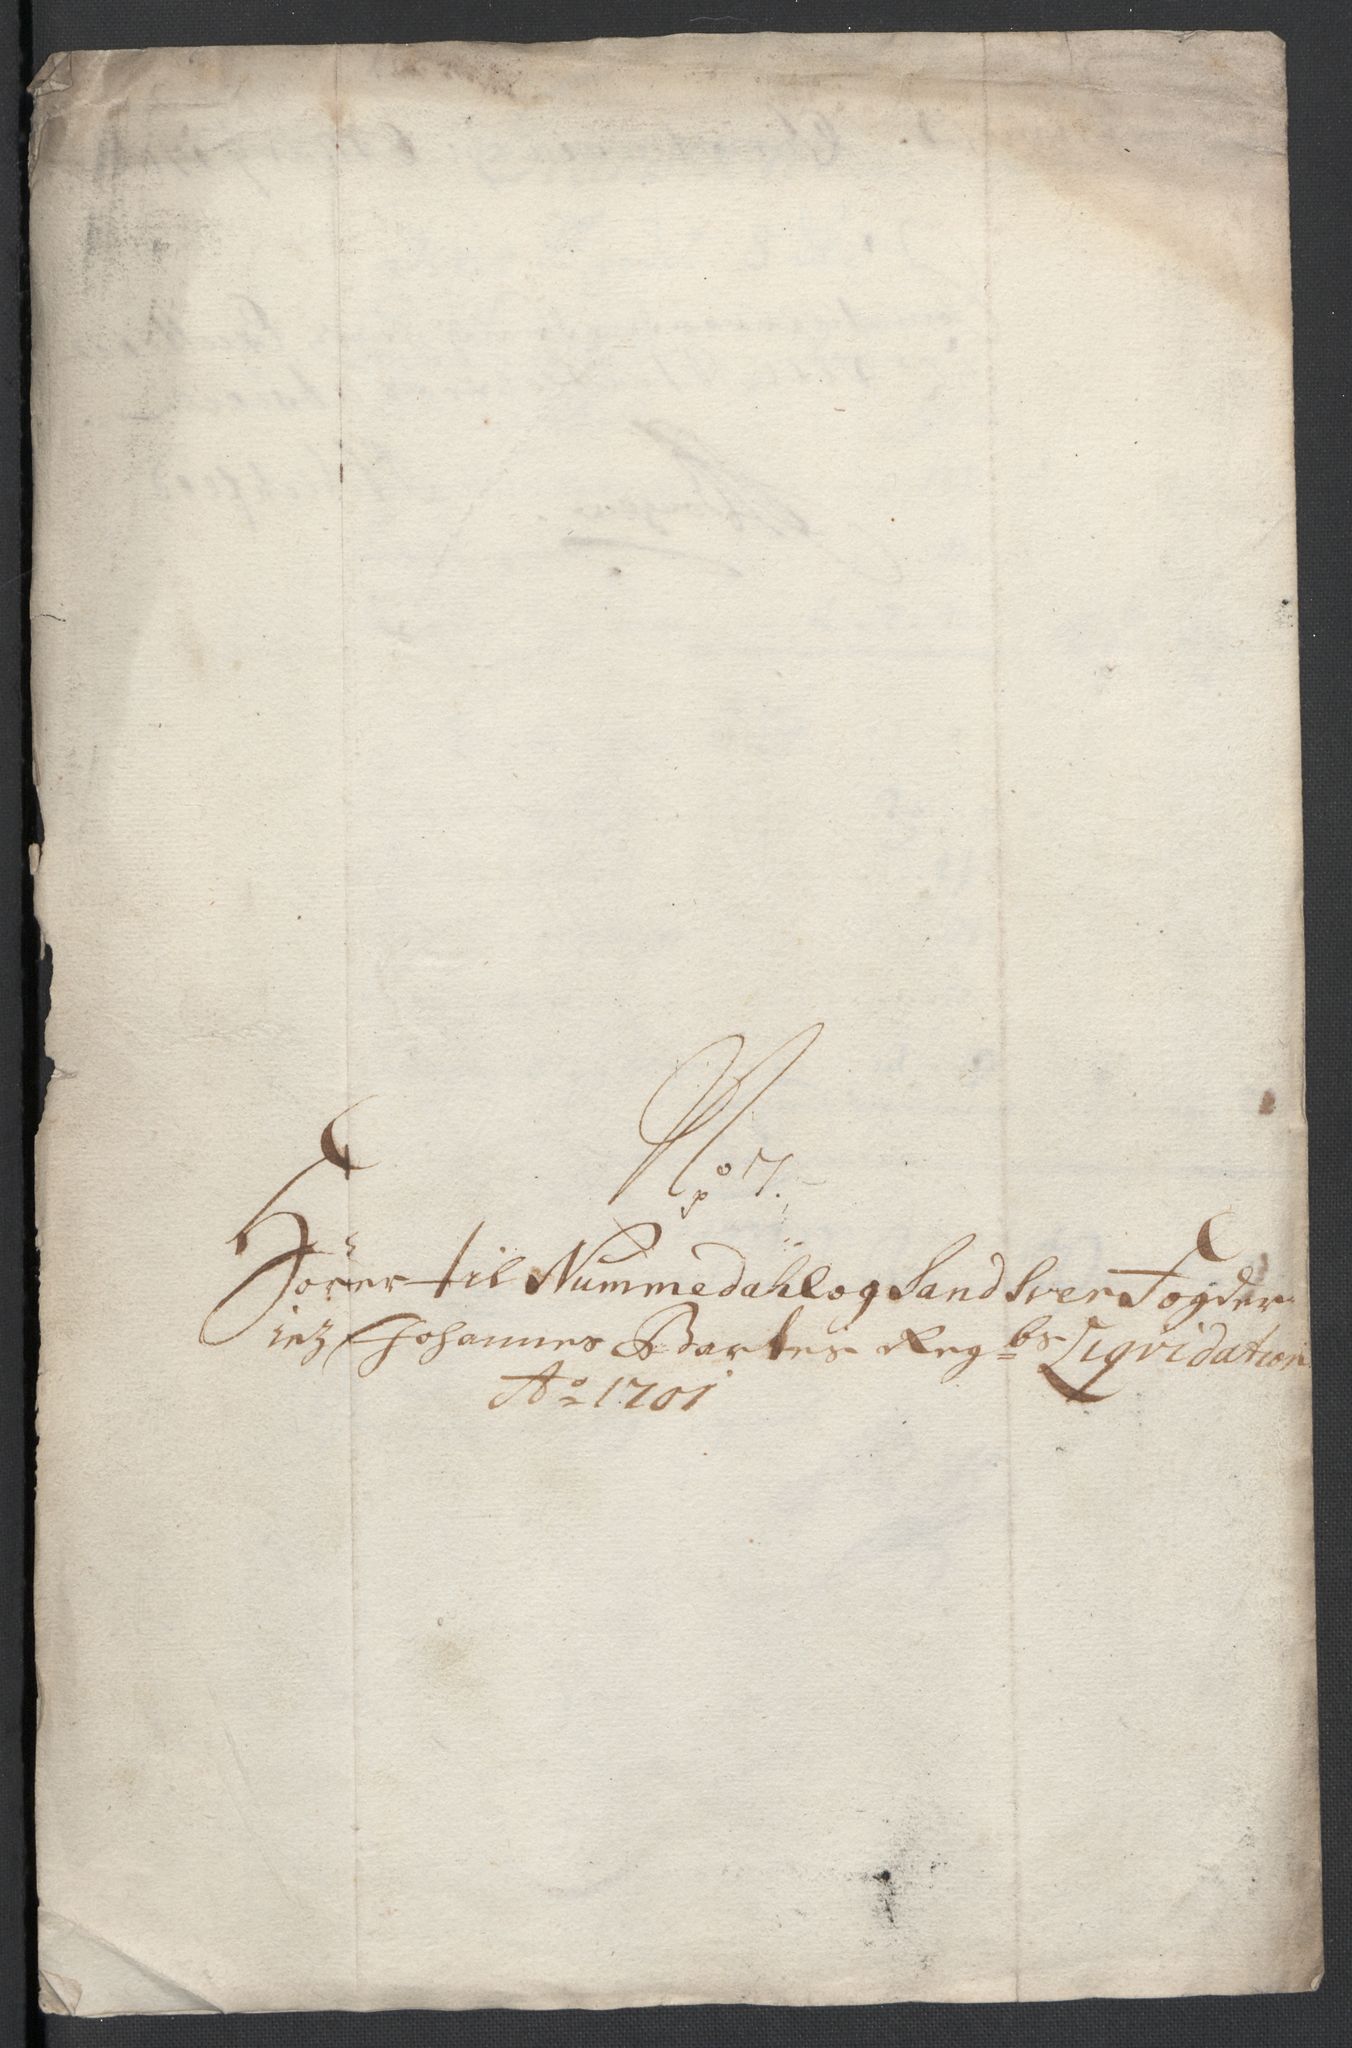 No 7.
Hörer til Nummedahl og Sandsver Fogder
iez Johannes Bartes Reg.bs Liqvidation
Ao 1701